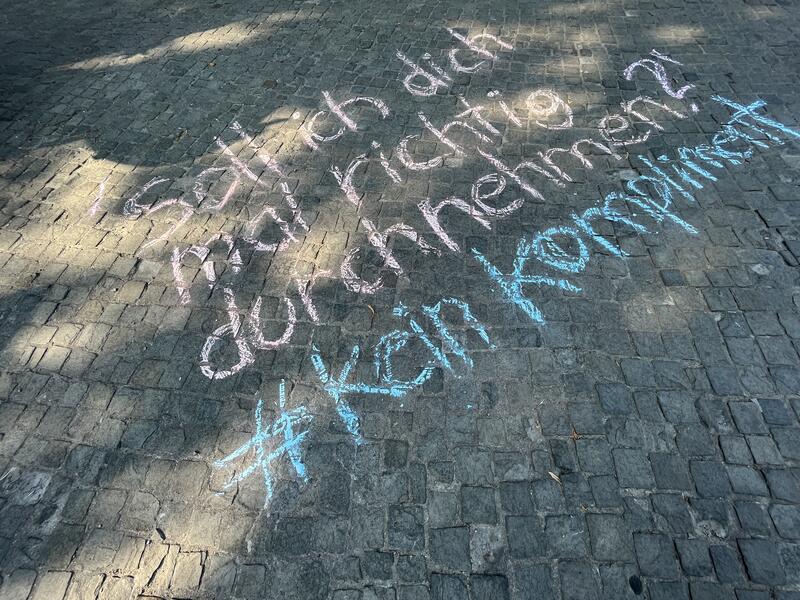 "Soll ich dich
mal richtig
durchnehmen?"
#KeinKompliment